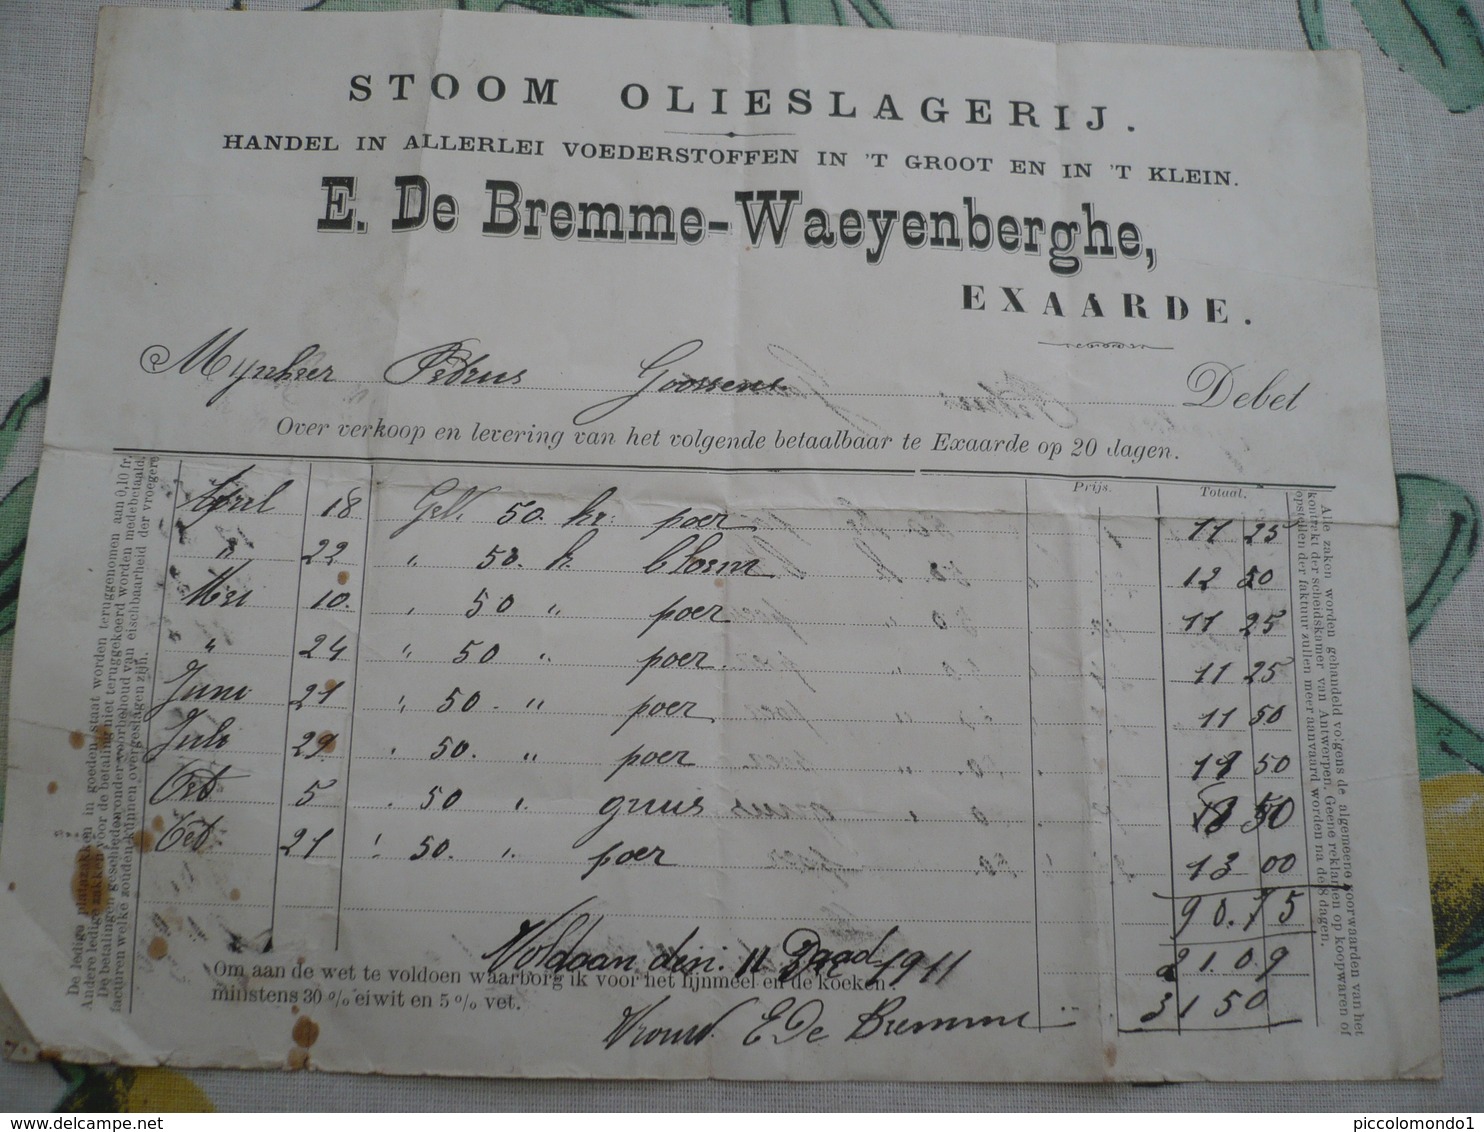 STOOM OLIESLAGERIJ.
HANDEL IN ALLERLEI VOEDERSTOFFEN IN 'T GROOT EN IN 'T KLEIN.
E. De Bremme-Waeyenberghe,
EXAARDE.
Mynheer Petrus Goossens Debet
Over verkoop en levering van het volgende betaalbaar te Exaarde op 20 dagen.
Prijs. Totaal.
April 18 Gel. 50 kr. poer 11 25
" 22 " 50. k. bloem 12 50
Mei 10. " 50 " poer 11 25
" 24 " 50 " poer. 11 25
Juni 21 " 50 - " poer 11 50
Juli 29. " 50. " poer 50
Oct 5 " 50 " gruis 50
Oct 21 " 50. " poer 13 00
90.75
21.09
31 50
Voldaan den: 11 1911
Om aan de wet te voldoen waarborg ik voor het lijnmeel en de koeken
minstens 30 % eiwit en 5 % vet.
E De Bremme
De ledige platzakken in goeden staat worden teruggenomen aan 0,10 fr.
Andere ledige zakken voor de betaling niet teruggekoerd worden medebetaald.
De betalingen geschieden onder voorbehoud van eischbaarheid der voegere
facturen welke zouden kunnen overgeslagen zijn.
Alle zaken worden gehandeld volgens de algemeene voorwaarden van het
kontrakt der scheidskamer van Antwerpen. Geene reklamen op koopwaren of
opstellen der faktuur zullen meer aanvaard worden na de 8 dagen.
www.delcampe.net
piccolomondo1